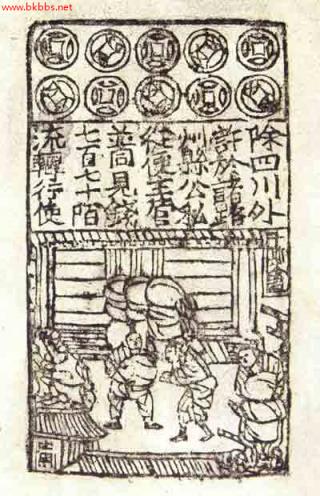 www.bkbbs.net
除四川外
許於諸路
州縣公私
從便主管
並同見錢
七百七十陌
流轉行使